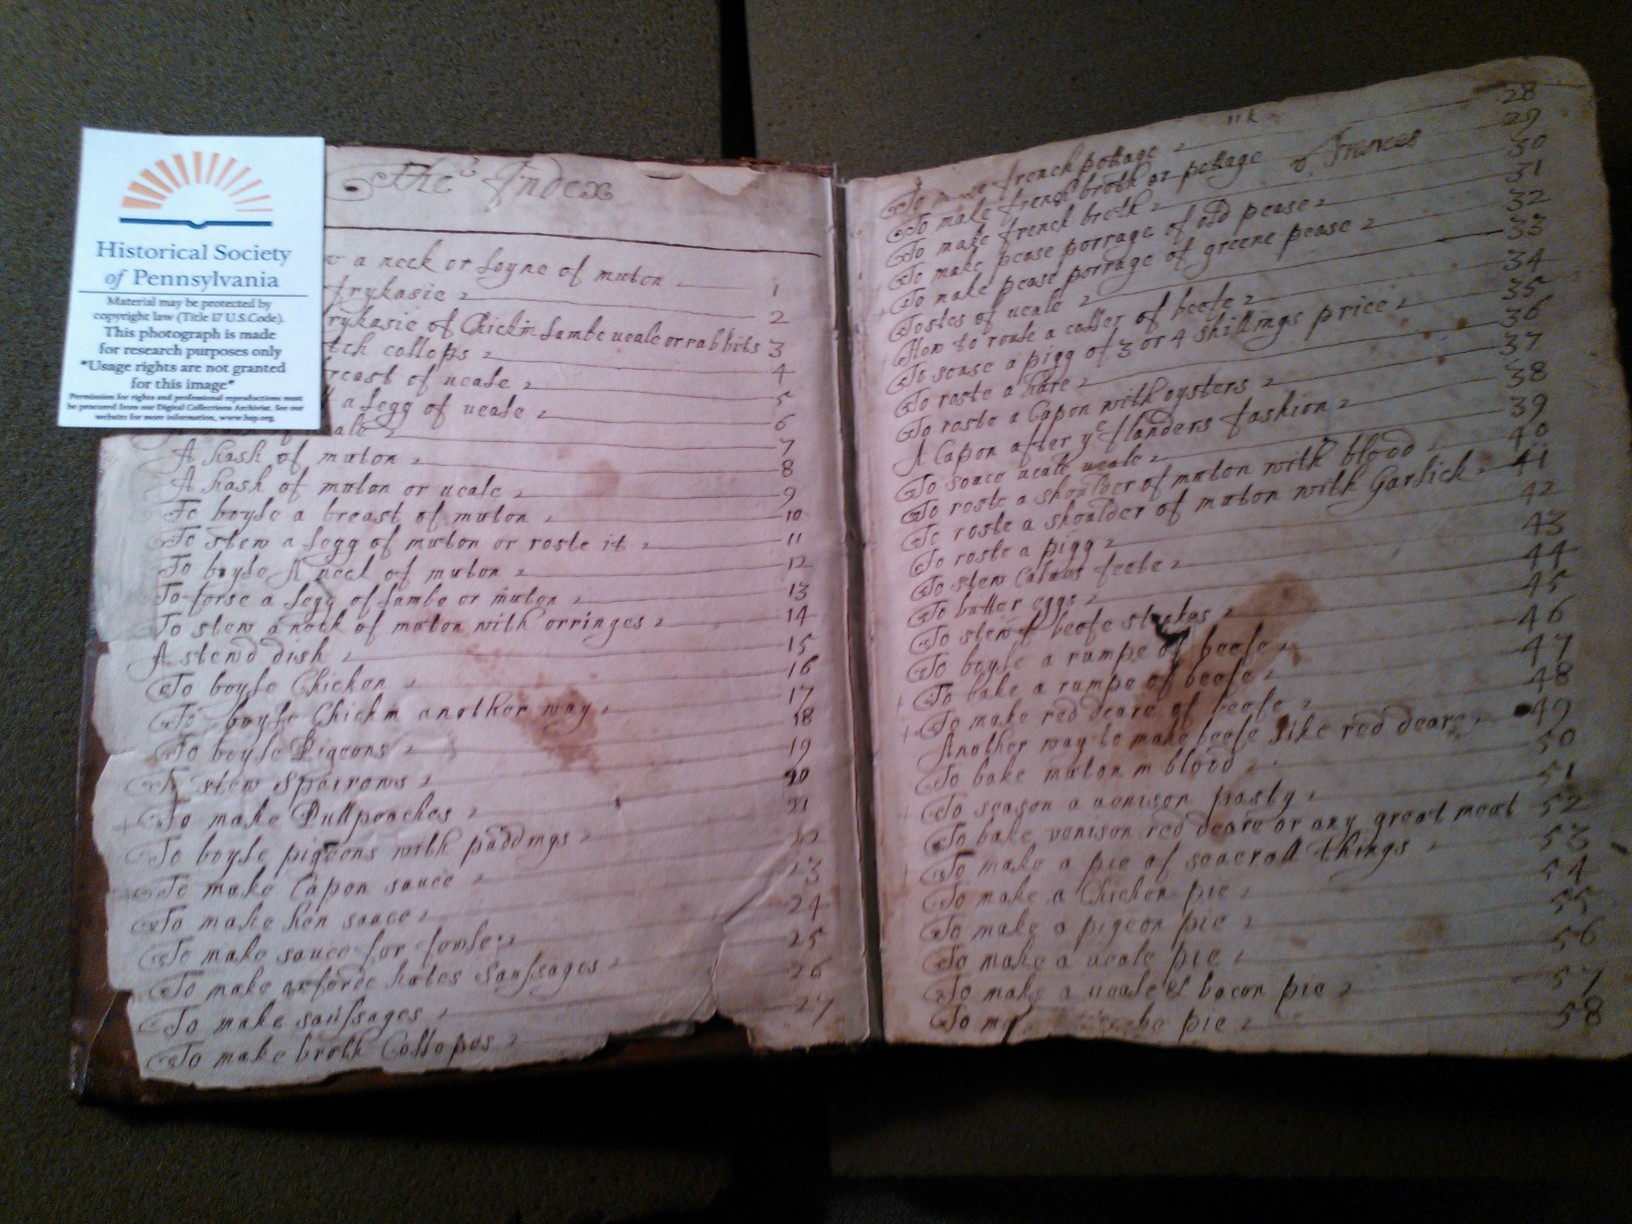 Historical Society
of Pennsylvania
Material may be protected by
copyright law (Title 17 U.S.Code).
This photograph is made
for research purposes only
*Usage rights are not granted
for this image*
Permission for rights and professional reproductions must
be procured from our Digital Collections Archivist. See our
website for more information, www.hsp.org.
The Index
a neck or loyne of muton 1
frykasie 2
rykasie of Chickin Lambe ueale or rabbits 3
tch collops 4
reast of ueale 5
a legg of ueale 6
of 7
A hash of muton 8
A hash of muton or ueale 9
To boyle a breast of muton 10
To stew a legg of muton or roste it 11
To boyle A neck of muton 12
To forse a legg of lambe or muton 13
To stew a neck of muton with orringes 14
A stewd dish 15
To boyle Chicken 16
To boyle Chickin another way 17
To boyle Pigeons 18
To stew Sparrows 19
To make Pullpenches 20
To boyle pigeons with puddings 21
To make Capon sauce 22
To make hen sauce 23
To make sauce for fowle 24
To make oxforde kates Saussages 25
To make saussages 26
To make broth Collopes 27
To french pottage 28
To make french broth or pottage of Frances 29
To make french broth 30
To make pease porrage of old pease 31
To make pease porrage of greene pease 32
Tostes of ueale 33
How to roule a coller of beefe 34
To souse a pigg of 3 or 4 shillings price 35
To roste a Hare 36
To roste a Capon with oysters 37
A Capon after ye flanders fashion 38
To souce ueale ueale 39
To roste a shoulder of muton with blood 40
To roste a shoulder of muton with Garlick 41
To roste a pigg 42
To stew Calues feete 43
To butter eggs 44
To stew beefe steakes 45
To boyle a rumpe of beefe 46
To bake a rumpe of beefe 47
To make red deare of beefe 48
Another way to make beefe like red deare 49
To bake muton in blood 50
To season a uenison pasty 51
To bake venison red deare or any great meat 52
To make a pie of seacrall things 53
To make a Chicken pie 54
To make a pigeon pie 55
To make a ueale pie 56
To make a ueale & bacon pie 57
To pie 58